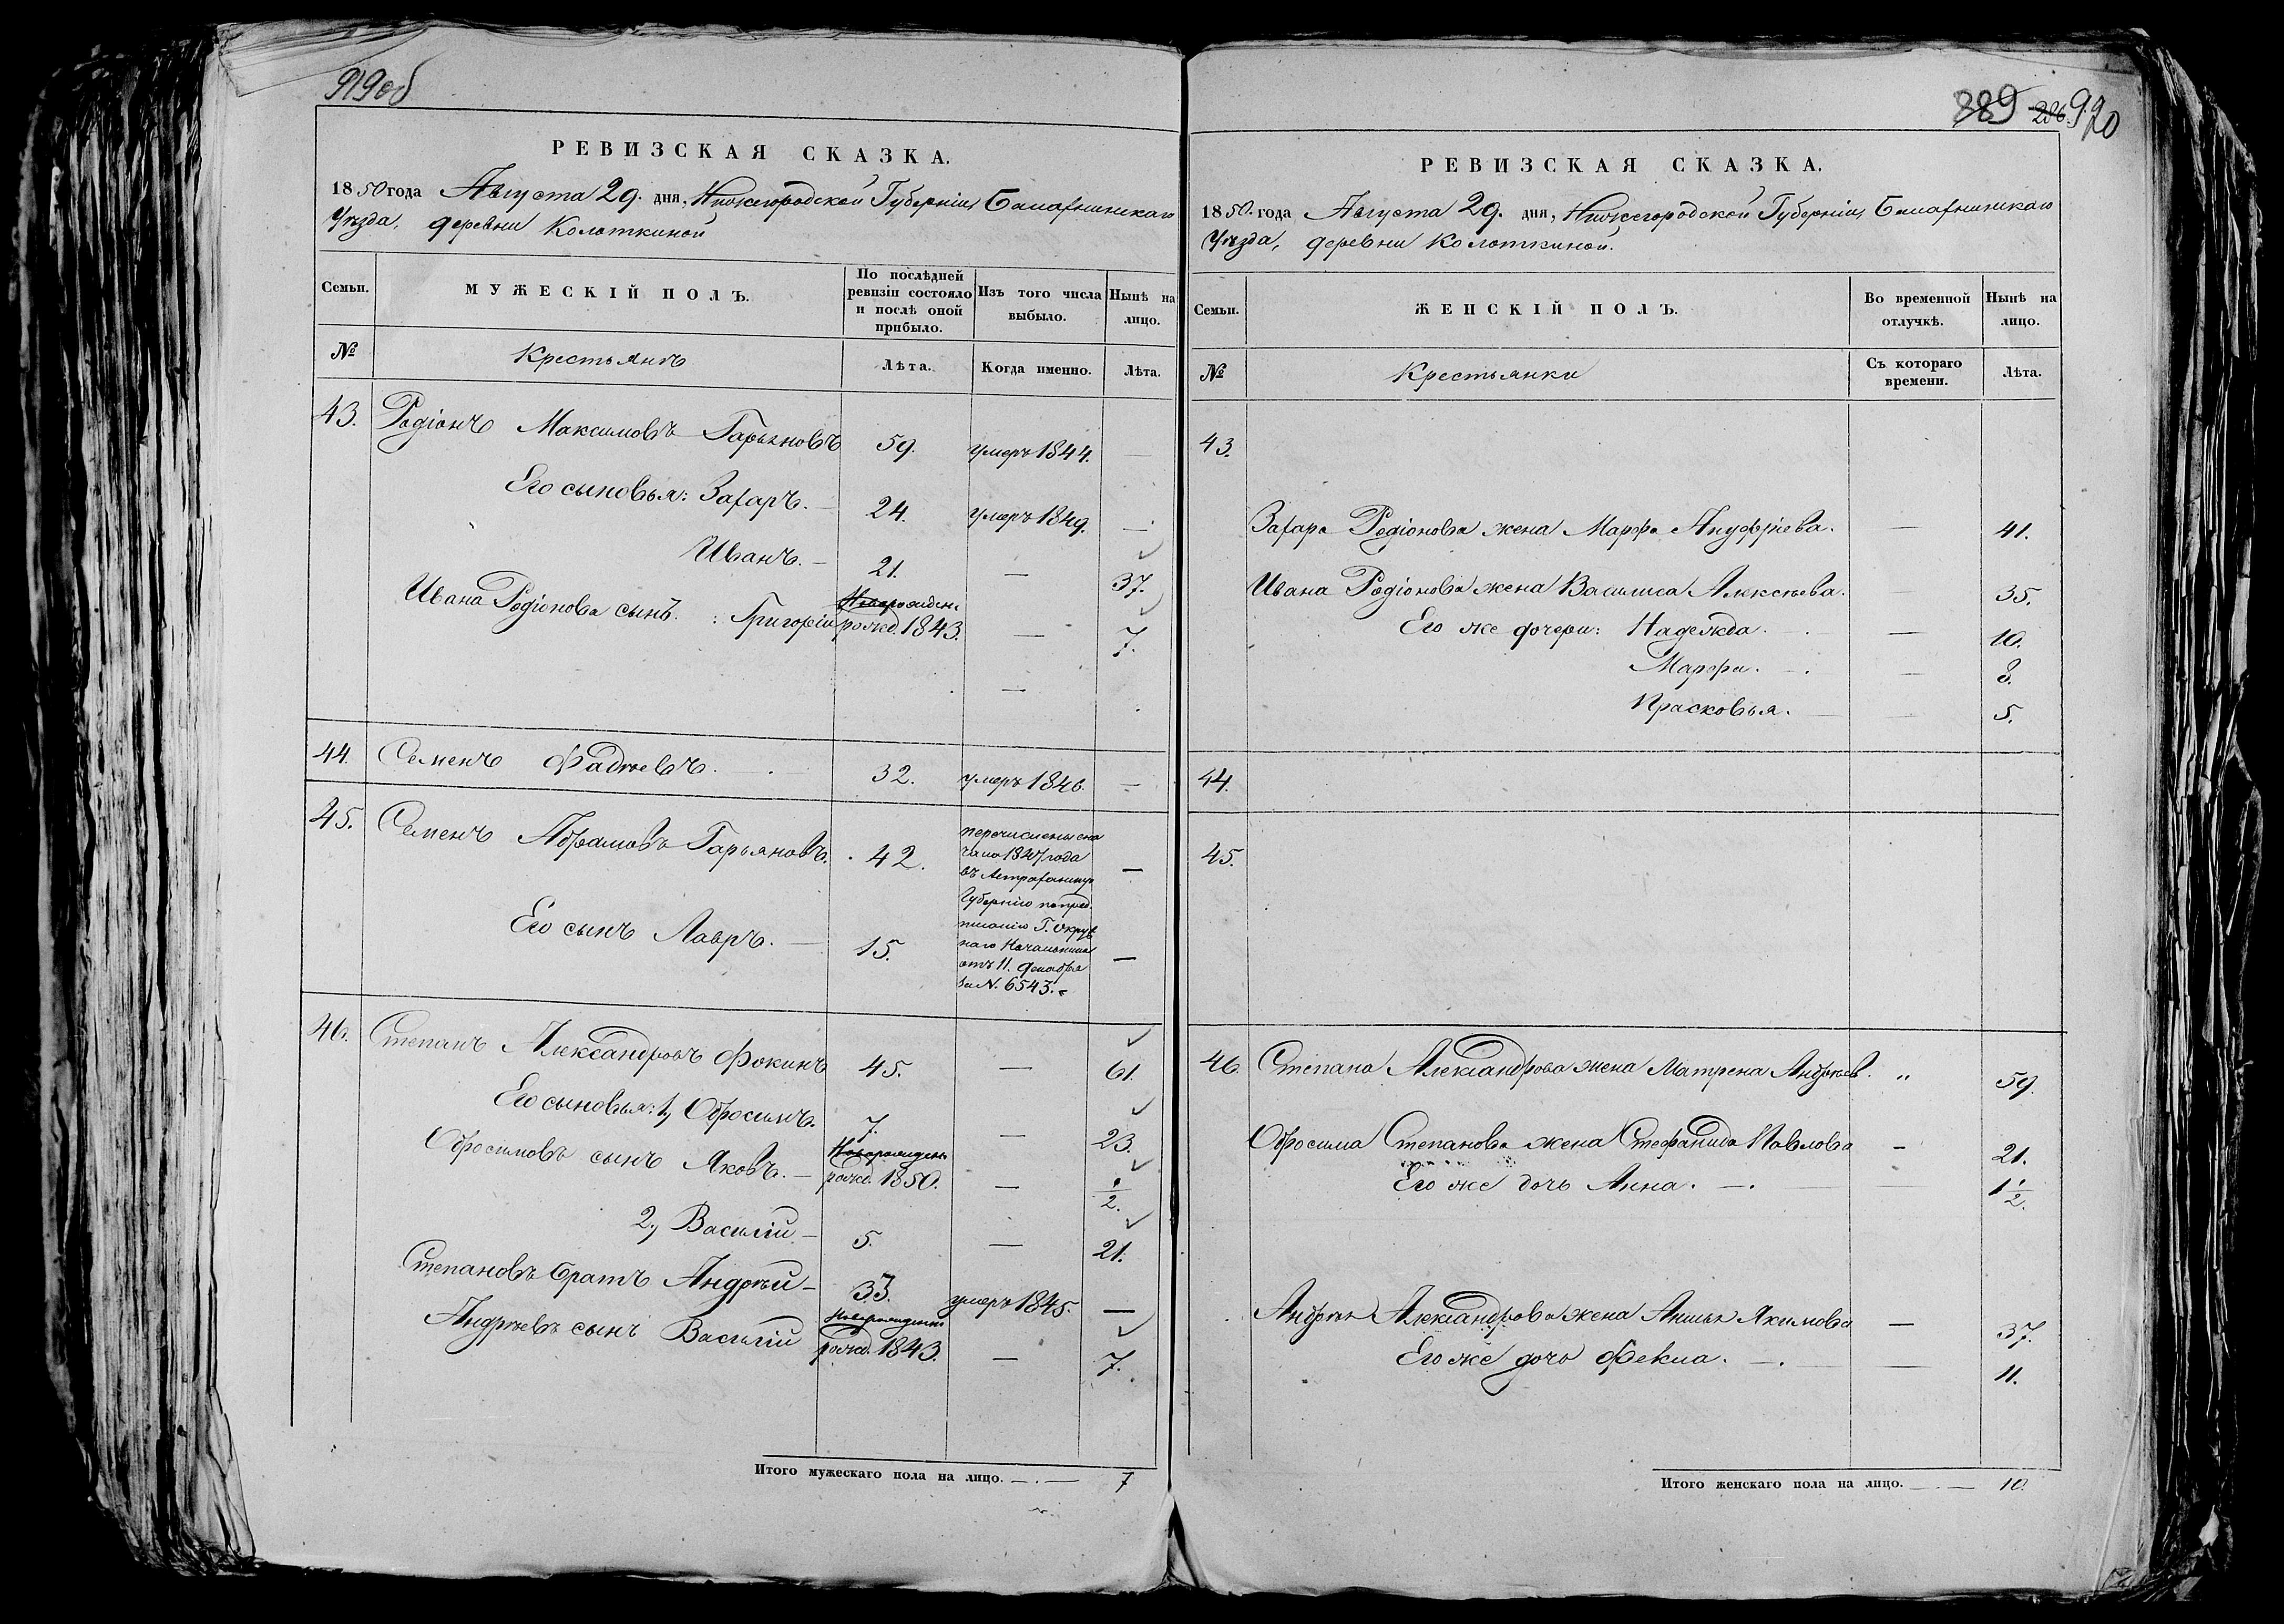 919 об
РЕВИЗСКАЯ СКАЗКА.
1850 года Августа 29. дня, Нижегородской Губернiи Балахнинскаго
Уѣзда, деревни Колоткиной
Семьи. МУЖЕСКІЙ ПОЛЪ. По послѣдней ревизіи состояло и послѣ оной прибыло. Изъ того числа выбыло. Нынѣ на лицо.
№ Крестьянъ Лѣта. Когда именно. Лѣта.
43. Родіонъ Максимовъ Гарьяновъ 59. умеръ 1844. —
Его сыновья: Захаръ. — 24. умеръ 1849. —
Иванъ. — 21. — 37.
Ивана Родіонова сынъ: Григорій новорожден. рожд. 1843. — 7.
44. Семенъ Фадѣевъ. 32. умеръ 1846. —
45. Семенъ Абрамовъ Гарьяновъ. 42. —
Его сынъ Лавръ. — 15. —
перечислены сна
чала 1847 года
въ Астраханскую
Губернію по пред
писанію Г. Окруж
наго Начальника
отъ 11. декабря
за N. 6543.
46. Степанъ Александровъ Фокинъ 45. — 61.
Его сыновья: 1, Обросимъ. 7. — 23.
Обросимовъ сынъ Яковъ. — новорожден. рожд. 1850. — 1/2.
2, Василій — 5. — 21.
Степановъ братъ Андрѣй — 33. умеръ 1845. —
Андрѣевъ сынъ Василій новорожден. рожд. 1843. — 7.
Итого мужескаго пола на лицо. — . — 7
889 286. 920
РЕВИЗСКАЯ СКАЗКА.
1850. года Августа 29. дня, Нижегородской Губерніи Балахнинскаго
Уѣзда, деревни Колоткиной.
Семьи. ЖЕНСКІЙ ПОЛЪ. Во временной отлучкѣ. Нынѣ на лицо.
№ Крестьянки Съ котораго времени. Лѣта.
43.
Захара Родіонова жена Марфа Ануфріева. — 41.
Ивана Родіонова жена Василиса Алексѣева. — 35.
Его же дочери: Надежда. — 10.
Марфа. — 8.
Прасковья. — 5.
44.
45.
46. Степана Александрова жена Матрена Андрѣев. „ 59.
Обросима Степанова жена Стефанида Павлова — 21.
Его же дочь Анна. — 1 1/2.
Андрѣя Александрова жена Анисья Якимова — 37.
Его же дочь Фекла. — 11.
Итого женскаго пола на лицо. — . — 10.